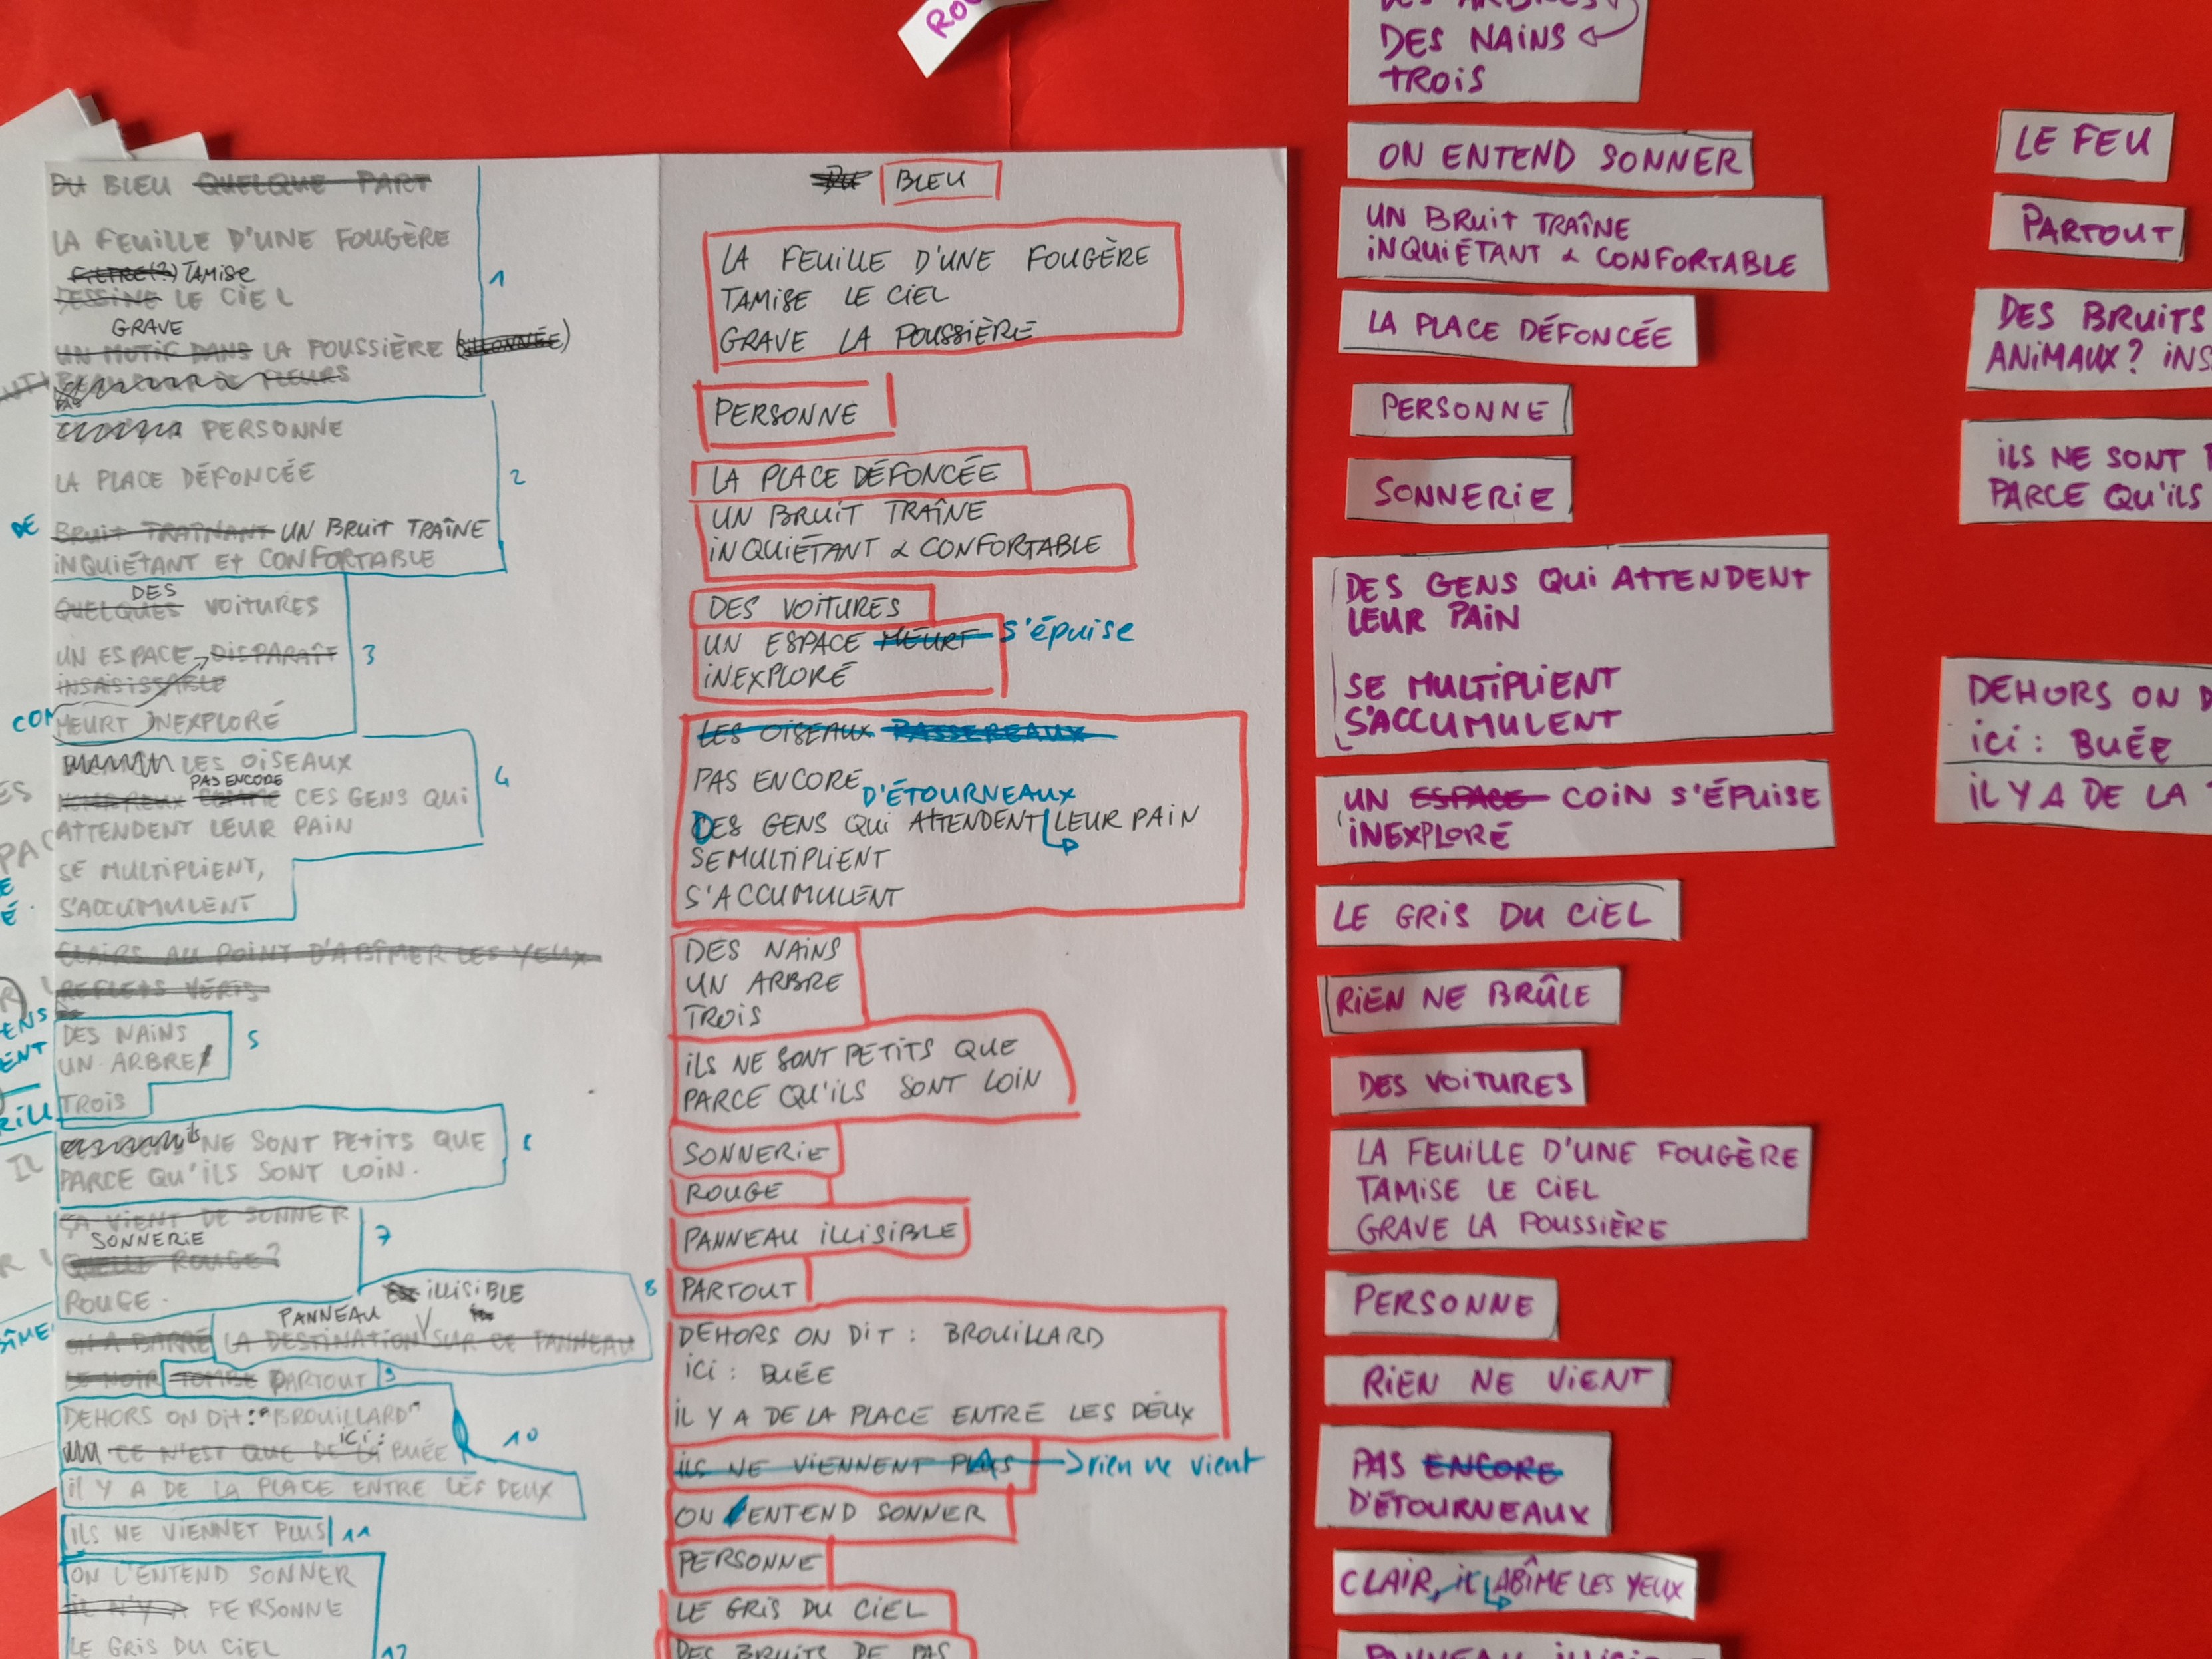 DU BLEU QUELQUE PART
LA FEUILLE D'UNE FOUGÈRE
FILTRE(?) TAMISE
DESSINE LE CIEL
GRAVE
UN MOTIF DANS LA POUSSIÈRE
1
PAS
PERSONNE
LA PLACE DÉFONCÉE
2
DE
BRUIT TRAÎNANT UN BRUIT TRAÎNE
INQUIÉTANT ET CONFORTABLE
DES
QUELQUES VOITURES
UN ESPACE DISPARAÎT
3
INSAISISSABLE
MEURT INEXPLORÉ
LES OISEAUX
PAS ENCORE
NOMBREUX COMME CES GENS QUI
4
ATTENDENT LEUR PAIN
SE MULTIPLIENT,
S'ACCUMULENT
CLAIRS AU POINT D'ABÎMER LES YEUX
REFLETS VERTS
DES NAINS
UN ARBRE
5
TROIS
ILS NE SONT PETITS QUE
PARCE QU'ILS SONT LOIN.
6
ÇA VIENT DE SONNER
SONNERIE
QUELLE ROUGE?
7
ROUGE.
PANNEAU ILLISIBLE
8
ON A BARRÉ LA DESTINATION SUR CE PANNEAU
LE NOIR TOMBE PARTOUT
9
DEHORS ON DIT : "BROUILLARD"
ICI :
CE N'EST QUE DE LA BUÉE
10
IL Y A DE LA PLACE ENTRE LES DEUX
ILS NE VIENNET PLUS
11
ON L'ENTEND SONNER
IL N'Y A PERSONNE
LE GRIS DU CIEL
12
DU BLEU
LA FEUILLE D'UNE FOUGÈRE
TAMISE LE CIEL
GRAVE LA POUSSIÈRE
PERSONNE
LA PLACE DÉFONCÉE
UN BRUIT TRAÎNE
INQUIÉTANT & CONFORTABLE
DES VOITURES
UN ESPACE MEURT S'épuise
INEXPLORÉ
LES OISEAUX PASSEREAUX
PAS ENCORE
D'ÉTOURNEAUX
DES GENS QUI ATTENDENT LEUR PAIN
SE MULTIPLIENT
S'ACCUMULENT
DES NAINS
UN ARBRE
TROIS
ILS NE SONT PETITS QUE
PARCE QU'ILS SONT LOIN
SONNERIE
ROUGE
PANNEAU ILLISIBLE
PARTOUT
DEHORS ON DIT : BROUILLARD
ICI : BUÉE
IL Y A DE LA PLACE ENTRE LES DEUX
ILS NE VIENNENT PLUS rien ne vient
ON ENTEND SONNER
PERSONNE
LE GRIS DU CIEL
DES BRUITS DE PAS
DES ARBRES
DES NAINS
TROIS
ON ENTEND SONNER
UN BRUIT TRAÎNE
INQUIÉTANT & CONFORTABLE
LA PLACE DÉFONCÉE
PERSONNE
SONNERIE
DES GENS QUI ATTENDENT
LEUR PAIN
SE MULTIPLIENT
S'ACCUMULENT
UN ESPACE COIN S'ÉPUISE
INEXPLORÉ
LE GRIS DU CIEL
RIEN NE BRÛLE
DES VOITURES
LA FEUILLE D'UNE FOUGÈRE
TAMISE LE CIEL
GRAVE LA POUSSIÈRE
PERSONNE
RIEN NE VIENT
PAS ENCORE
D'ÉTOURNEAUX
CLAIR, IL ABÎME LES YEUX
LE FEU
PARTOUT
DES BRUITS
ANIMAUX? INS
ILS NE SONT
PARCE QU'ILS
DEHORS ON D
ICI : BUÉE
IL Y A DE LA